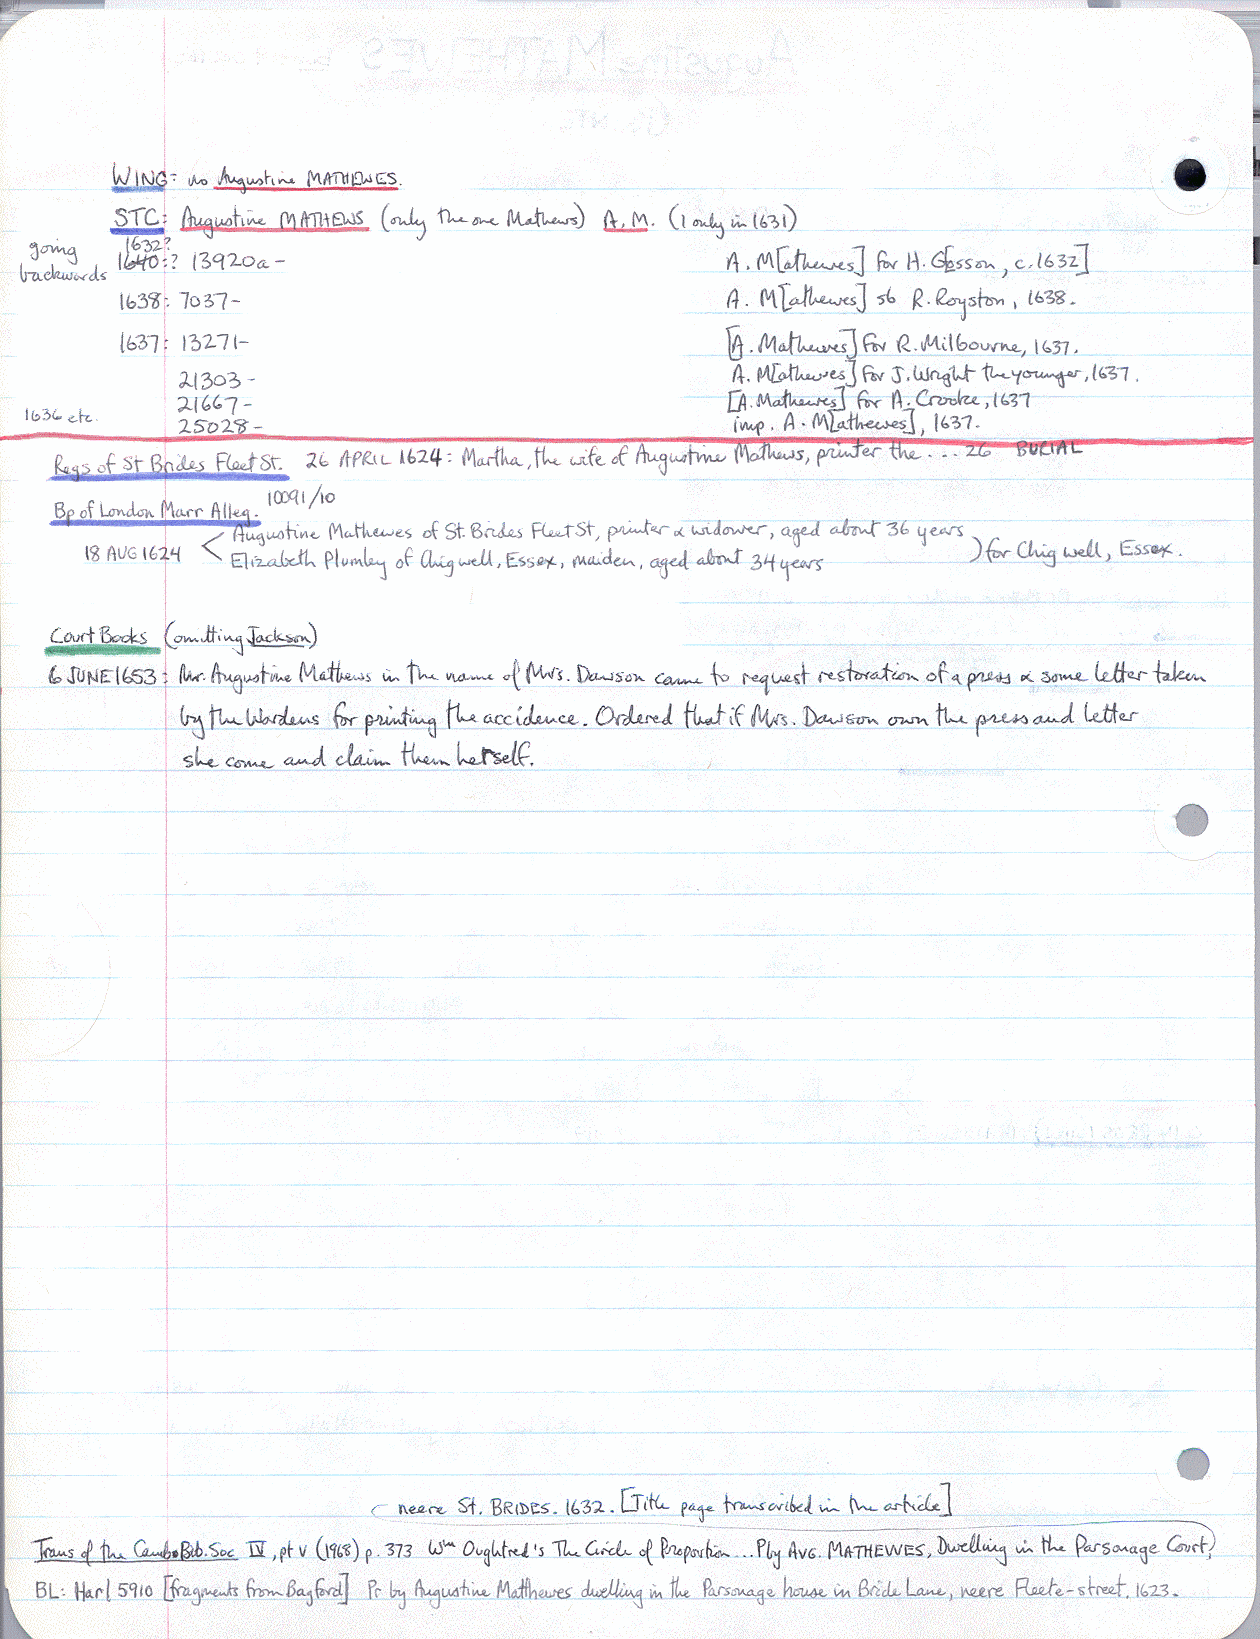 WING: no Augustine MATHEWES.
STC: Augustine MATHEWS (only the one Mathews) A.M. (1 only in 1631)
going backwards
1632?
1640:? 13920a - A. M[athewes] for H. Gosson, c.1632]
1638: 7037- A. M[athewes] sb R. Royston, 1638.
1637: 13271- [A. Mathewes] for R. Milbourne, 1637.
21303 - A. M[athewes] for J. Wright the younger, 1637.
21667- [A. Mathewes] for A. Crooke, 1637
1636 etc. 25028- imp. A. M[athewes], 1637.
Regs of St Brides Fleet St. 26 APRIL 1624: Martha, the wife of Augustine Mathews, printer the ... 26 BURIAL
Bp of London Marr Alleg. 10091/10
18 AUG 1624 Augustine Mathewes of St. Brides Fleet St, printer & widower, aged about 36 years
Elizabeth Plumley of Chigwell, Essex, maiden, aged about 34 years ) for Chigwell, Essex.
Court Books (omitting Jackson)
6 JUNE 1653: Mr. Augustine Mathews in the name of Mrs. Dawson came to request restoration of a press & some letter taken
by the Wardens for printing the accidence. Ordered that if Mrs. Dawson own the press and letter
she come and claim them herself.
neere St. BRIDES. 1632. [Title page transcribed in the article]
Trans of the Camb. Bib. Soc IV, pt V (1968) p. 373 Wm Oughtred's The Circle of Proportion... P by AVG. MATHEWES, Dwelling in the Parsonage Court,
BL: Harl 5910 [fragments from Bagford] Pr by Augustine Matthewes dwelling in the Parsonage house in Bride Lane, neere Fleete-street. 1623.